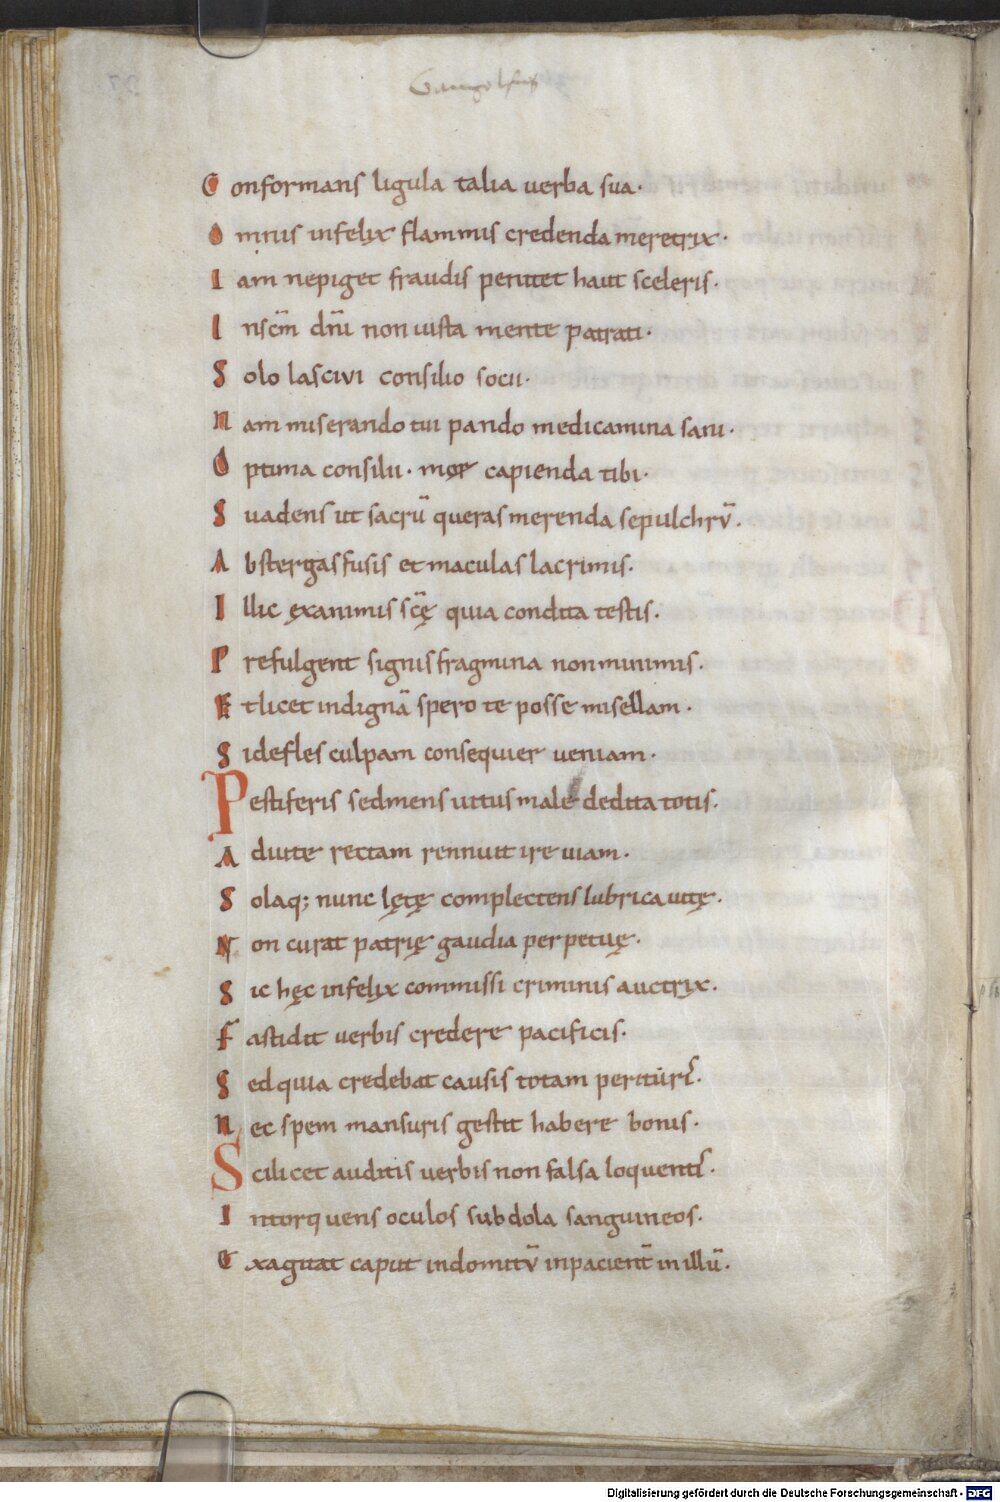 Gangolfus
Conformans ligula talia uerba sua.
O mnis infelix flammis credenda meretrix.
I am nepiget fraudis penitet haut sceleris.
I nscm̄ dn̄i non iusta mente patrati.
S olo lascivi consilio socii.
N am miserando tui pando medicamina sani.
O ptima consilii. mox capienda tibi.
S uadens ut sacrū queras merenda sepulchrū.
A bstergas fusis et maculas lacrimis.
I llic exanimis scę̄ quia condita testis.
P refulgent signis fragmina non minimis.
E t licet indignā spero te posse misellam.
S i defles culpam consequier ueniam.
Pestiferis sed mens uitus male dedita totis.
A duite rectam rennuit ire uiam.
S olaq; nunc lętę complectens lubrica uitę.
N on curat patrię gaudia perpetuę.
S ic hęc infelix commissi criminis auctrix.
F astidit uerbis credere pacificis.
S ed quia credebat causis totam periturꝭ.
N ec spem mansuris gestit habere bonis.
Scilicet auditis uerbis non falsa loquentꝭ.
I ntorquens oculos subdola sanguineos.
E xagitat caput indomitū inpacient̄ in illū.
Digitalisierung gefördert durch die Deutsche Forschungsgemeinschaft - DFG